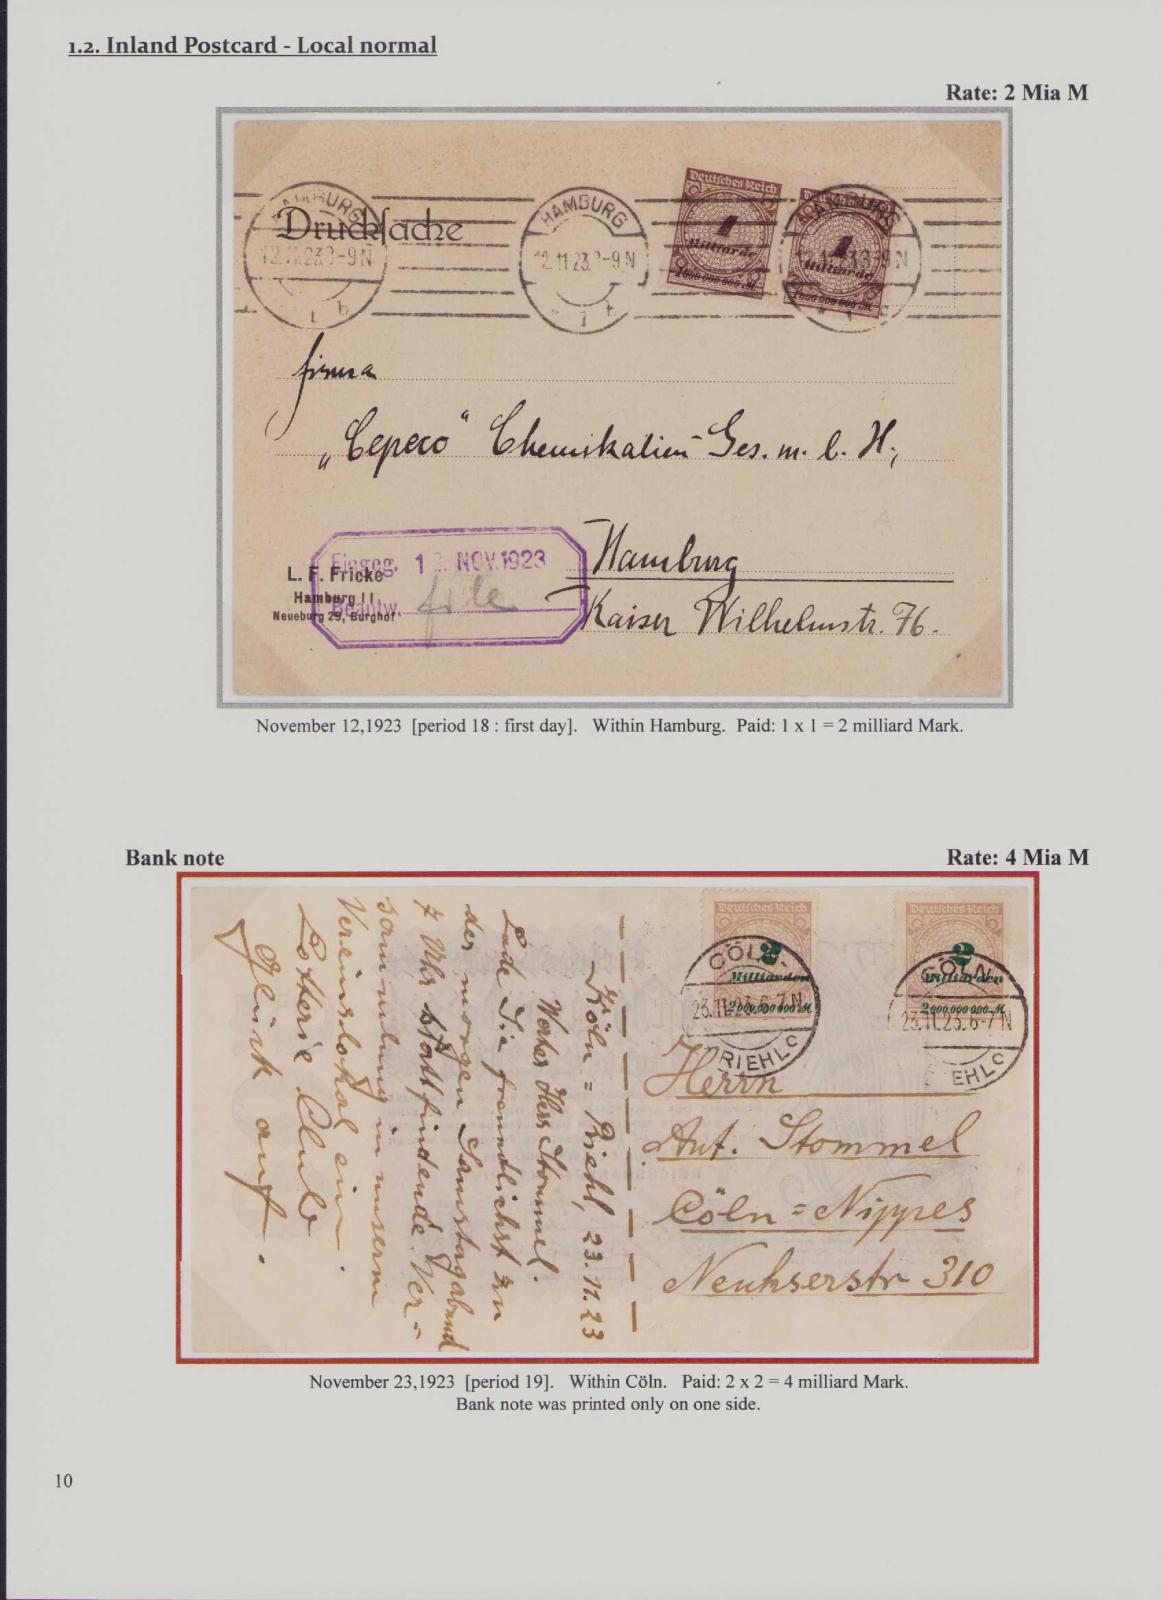 1.2. Inland Postcard - Local normal
Rate: 2 Mia M
Drucksache
HAMBURG
12.11.23.8-9N
1 b
HAMBURG
12.11.23.8-9N
* 1 b
HAMBURG
* 1 b
Deutsches Reich
1
Milliarde
1000 000 000 M
1
Milliarde
1000 000 000 M
firma
„Cepeco" Chemikalien-Ges. m. b. H.,
Hamburg
Kaiser Wilhelmstr. 76.
Eingeg. 1 . NOV. 1923
Beantw.
file
L. F. Fricke
Hamburg 11
Neueburg 29, Burghof
November 12,1923 [period 18 : first day]. Within Hamburg. Paid: 1 x 1 = 2 milliard Mark.
Bank note
Rate: 4 Mia M
Deutsches Reich
2
Milliarden
2000 000 000 M
Deutsches Reich
2
Milliarden
2000 000 000 M
CÖLN-
23.11.23.6-7N
RIEHL c
CÖLN
23.11.23.6-7N
EHL c
Herrn
Ant. Stommel
Cöln=Nippes
Neuhserstr 310
Köln=Riehl, 23.11.23
Werter Herr Stommel.
Lade Sie freundlichst zu
der morgen Samstagabend
7 Uhr stattfindende Ver=
sammlung in unserm
Vereinslokal ein.
Lotterie Club
Glück auf.
November 23,1923 [period 19]. Within Cöln. Paid: 2 x 2 = 4 milliard Mark.
Bank note was printed only on one side.
10